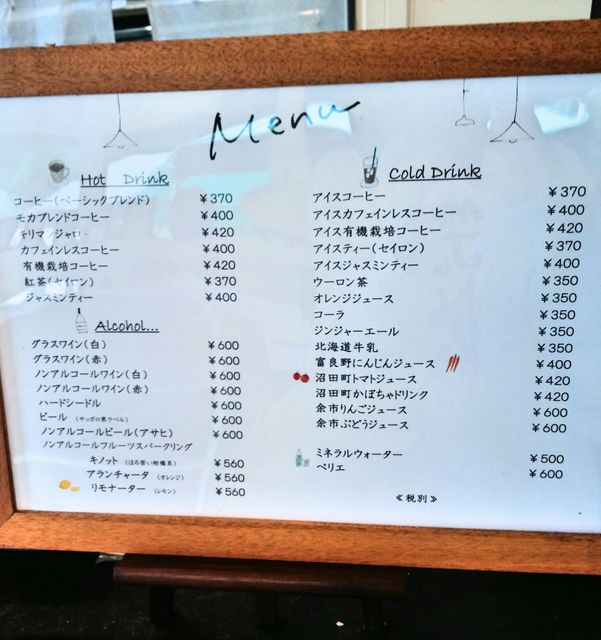 Menu
Hot Drink
コーヒー(ベーシックブレンド) ￥370
モカブレンドコーヒー ￥400
キリマンジャロ ￥420
カフェインレスコーヒー ￥400
有機栽培コーヒー ￥420
紅茶(セイロン) ￥370
ジャスミンティー ￥400
Alcohol...
グラスワイン(白) ￥600
グラスワイン(赤) ￥600
ノンアルコールワイン(白) ￥600
ノンアルコールワイン(赤) ￥600
ハードシードル ￥600
ビール (サッポロ黒ラベル) ￥600
ノンアルコールビール(アサヒ) ￥600
ノンアルコールフルーツスパークリング
キノット (ほろ苦い柑橘系) ￥560
アランチャータ (オレンジ) ￥560
リモナーター (レモン) ￥560
Cold Drink
アイスコーヒー ￥370
アイスカフェインレスコーヒー ￥400
アイス有機栽培コーヒー ￥420
アイスティー(セイロン) ￥370
アイスジャスミンティー ￥400
ウーロン茶 ￥350
オレンジジュース ￥350
コーラ ￥350
ジンジャーエール ￥350
北海道牛乳 ￥350
富良野にんじんジュース ￥400
沼田町トマトジュース ￥420
沼田町かぼちゃドリンク ￥420
余市りんごジュース ￥600
余市ぶどうジュース ￥600
ミネラルウォーター ￥500
ペリエ ￥600
≪税別≫